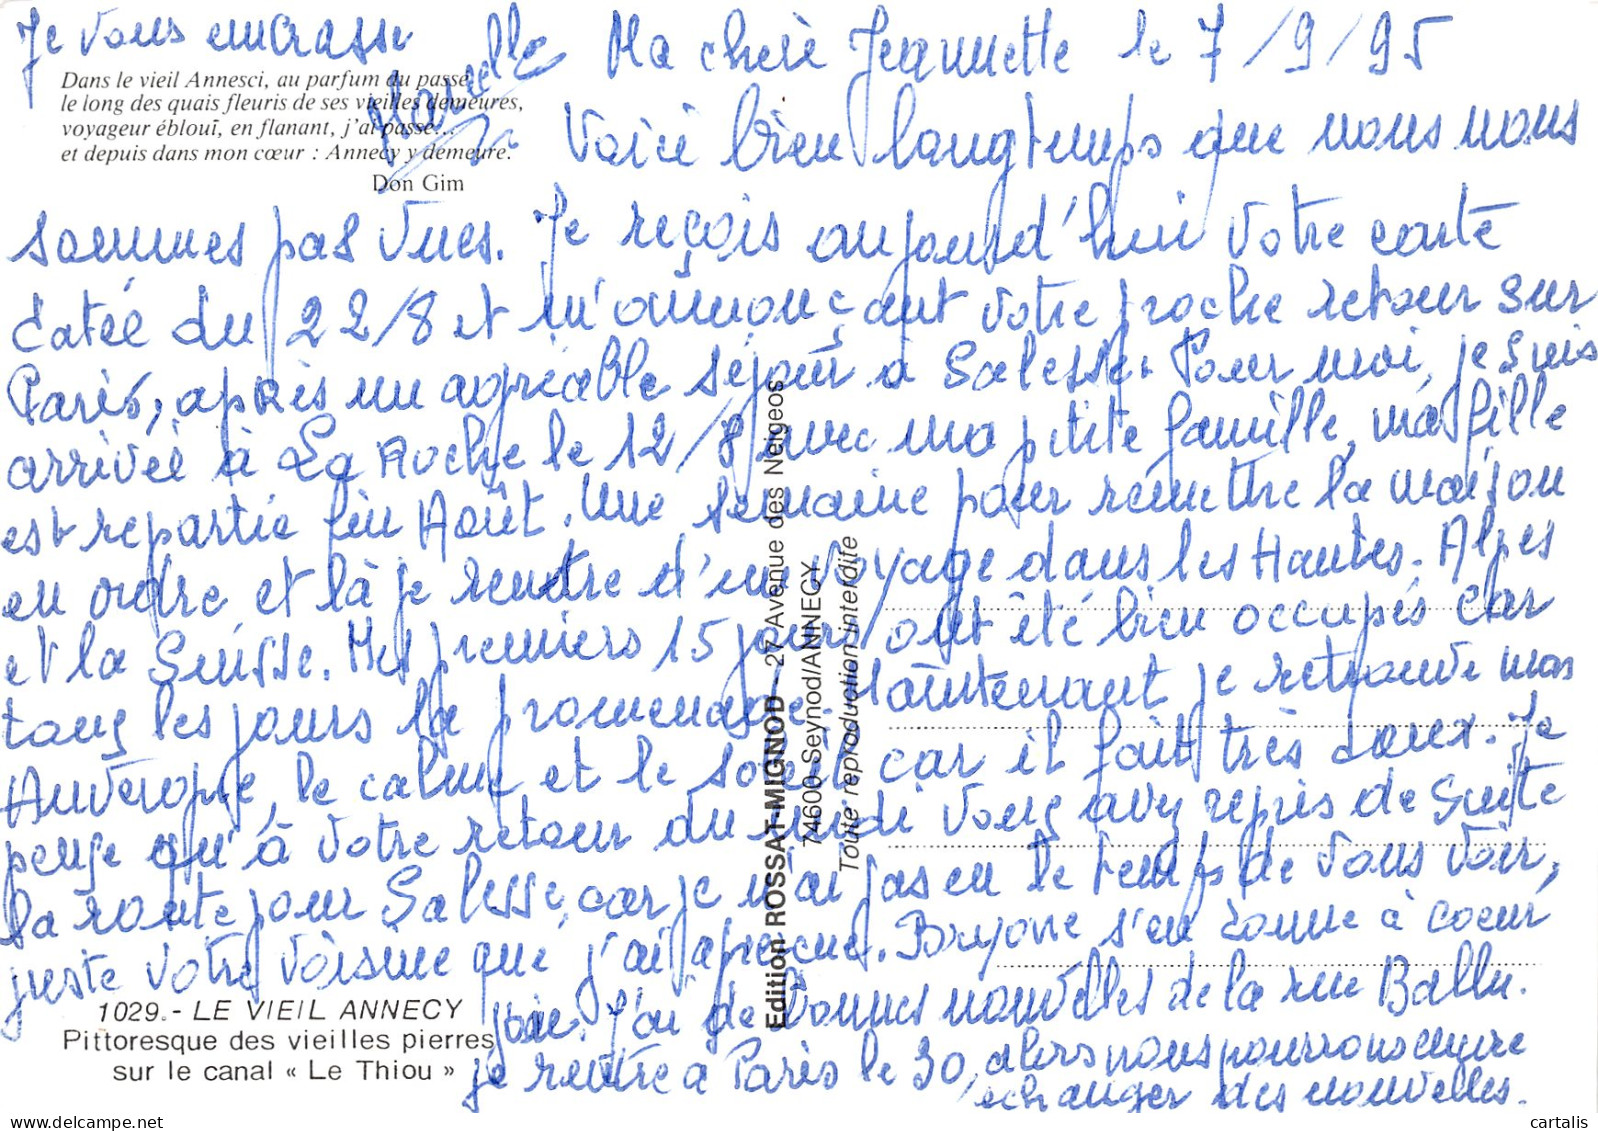 Je vous embrasse
Marcelle
Dans le vieil Annesci, au parfum du passé
le long des quais fleuris de ses vieilles demeures,
voyageur éblouï, en flanant, j'ai passé...
et depuis dans mon cœur : Annecy y demeure.
Don Gim
Ma chère Jeannette le 7/9/95
Voici bien longtemps que nous nous
sommes pas vues. Je reçois aujourd'hui votre carte
datée du 22/8 et m'annonçant votre proche retour sur
Paris, après un agréable séjour à Salesse. Pour moi, je suis
arrivée à La Roche le 12/8 avec ma petite famille, ma fille
est repartie fin Août. Une semaine pour remettre la maison
en ordre et là je rentre d'un voyage dans les Hautes-Alpes
et la Suisse. Mes premiers 15 jours ont été bien occupés car
tous les jours la promenade. Maintenant je retrouve mon
Auvergne, le calme et le soleil car il fait très doux. Je
pense qu'à votre retour du midi vous avez repris de suite
la route pour Salesse, car je n'ai pas eu le temps de vous voir,
juste votre voisine que j'ai aperçue. s'en donne à coeur
joie. J'ai de bonnes nouvelles de la rue Ballu.
je rentre à Paris le 30, alors nous pourrons encore
échanger des nouvelles.
1029.- LE VIEIL ANNECY
Pittoresque des vieilles pierres
sur le canal « Le Thiou »
Edition ROSSAT-MIGNOD - 27, Avenue des Neigeos
74600 Seynod/ANNECY
Toute reproduction interdite
cartalis